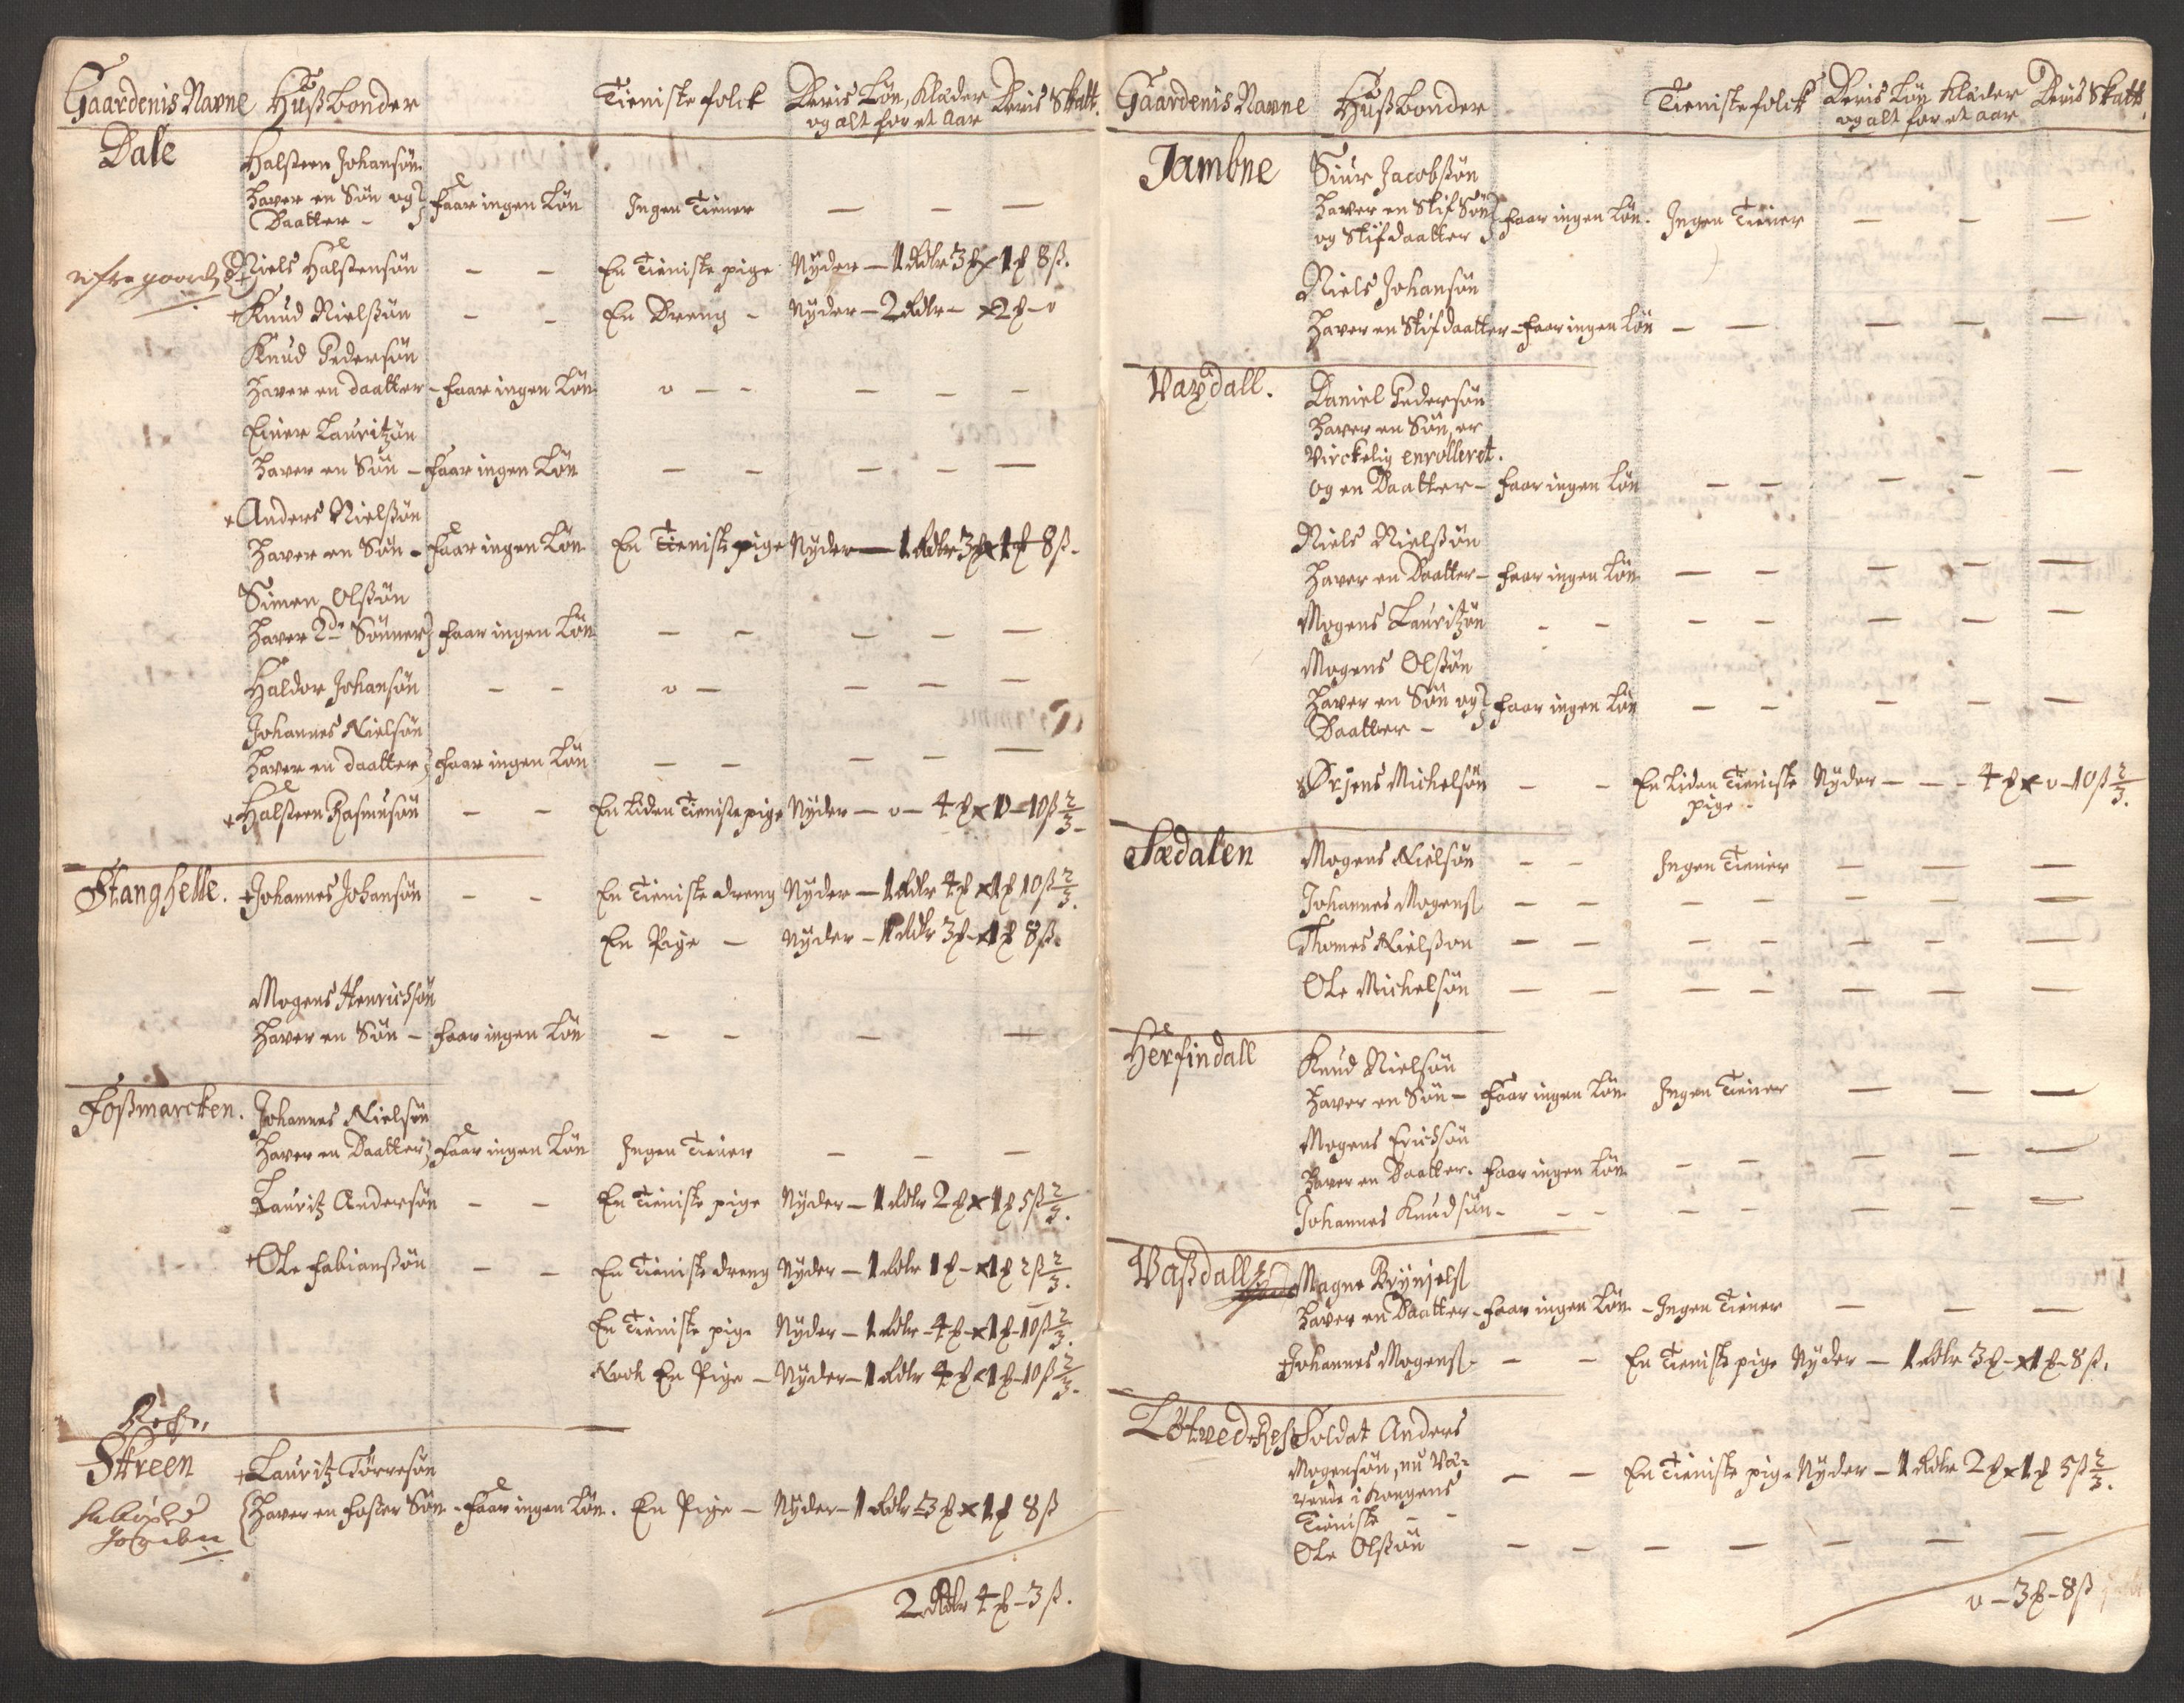 Gaardenis Navne Hußbonder Tieniste folck Deris Løn, Klæder Deris Skatt.
og alt for et Aar
Dale Halsteen Johansøn
haver en Søn og faar ingen Løn Ingen Tiener — — —
Daatter -
Niels Halstensøn - - En Tieniste pige Nyder — 1 Rdlr 3 ꝑ x 1 ꝑ 8 ß.
+Knud Nielßøn - - En Dreng - Nyder — 2 Rdlr - x 2 ꝑ - o
Knud Pedersøn
haver en daatter - faar ingen Løn o - - — — —
Einer Lauritzøn
haver en Søn - faar ingen Løn — — — — —
+Anders Nielßøn
haver en Søn - faar ingen Løn En Tieniste pige Nyder — 1 Rdlr 3 ꝑ x 1 ꝑ 8 ß.
Simen Olßøn
haver 2de Sønner faar ingen Løn — — — — —
Haldor Johansøn - - o — — — —
Johannes Nielsøn
haver en daatter faar ingen Løn — — — — —
+Halsteen Rasmusøn - - En Liden Tieniste pige Nyder — o — 4 ꝑ x 0 - 10 ß 2/3.
Stanghelle. +Johannes Johansøn - - En Tieniste dreng Nyder — 1 Rdlr 4 ꝑ x 1 ꝑ 10 ß 2/3.
En Pige - Nyder - 1 Rdlr 3 ꝑ - x 1 ꝑ 8 ß.
Mogens Henrichsøn
haver en Søn - faar ingen Løn — — — —
Foßmarcken. Johannes Nielsøn
haver en Daatter faar ingen Løn Ingen Tiener — — —
Lauritz Andersøn - - En Tieniste pige Nyder — 1 Rdlr 2 ꝑ x 1 ꝑ 5 ß 2/3.
+Ole Fabianßøn - - En Tieniste dreng Nyder — 1 Rdlr 1 ꝑ - x 1 ꝑ 2 ß 2/3.
En Tieniste pige Nyder — 1 Rdlr - 4 ꝑ - x 1 ꝑ - 10 ß 2/3.
Noch En Pige - Nyder - 1 Rdlr 4 ꝑ x 1 ꝑ - 10 ß 2/3.
Skreen +Lauritz Tørresøn
haver en foster Søn - faar ingen Løn. En Pige — Nyder - 1 Rdlr 3 ꝑ x 1 ꝑ 8 ß
2 Rdlr 4 ꝑ - 3 ß.
Gaardenis Navne Hußbonder Tieniste folck Deris Løn Klæder Deris Skatt.
og alt for et aar
Jambne Siur Jacobßøn
haver en Stif Søn faar ingen Løn. Ingen Tiener — — —
og Stifdaatter
Niels Johansøn
haver en Stifdaatter - faar ingen Løn — — — — —
Daniel Pedersøn
haver en Søn, er
Virckelig enrolleret.
og en Daatter - faar ingen Løn — — — — —
Niels Nielßøn
haver en Daatter - faar ingen Løn — — — — —
Mogens Lauritzøn - - — — — — —
Mogens Olßøn
haver en Søn og faar ingen Løn — — — — —
Daatter -
+Ørjens Michelsøn - - En Liden Tieniste Nyder - - - 4 ꝑ x o - 10 ß 2/3.
pige -
Sædalen Mogens Nielsøn - - Ingen Tiener — — —
Johannes Mogens — — — — — — —
Thomes Nielßøn — — — — — — —
Ole Michelsøn — — — — — — —
Herfindall Knud Nielsøn
haver en Søn - faar ingen Løn Ingen Tiener — — —
Mogens Erichsøn
haver en Daatter. faar ingen Løn — — — — —
Johannes Knudsøn - - - — — — — —
Vaßdall Magne Brynjels
haver en Daatter - faar ingen Løn - Ingen Tiener — — —
+Johannes Mogens - - En Tieniste pige Nyder — 1 Rdlr 3 ꝑ - x 1 ꝑ - 8 ß.
Soldat Anders
Mogensøn, nu Væ-
rende i Kongens — — En Tieniste pige Nyder — 1 Rdlr 2 ꝑ x 1 ꝑ 5 ß 2/3.
Tieniste - -
Ole Olßøn — — — — — — —
o - 3 ꝑ - 8 ß